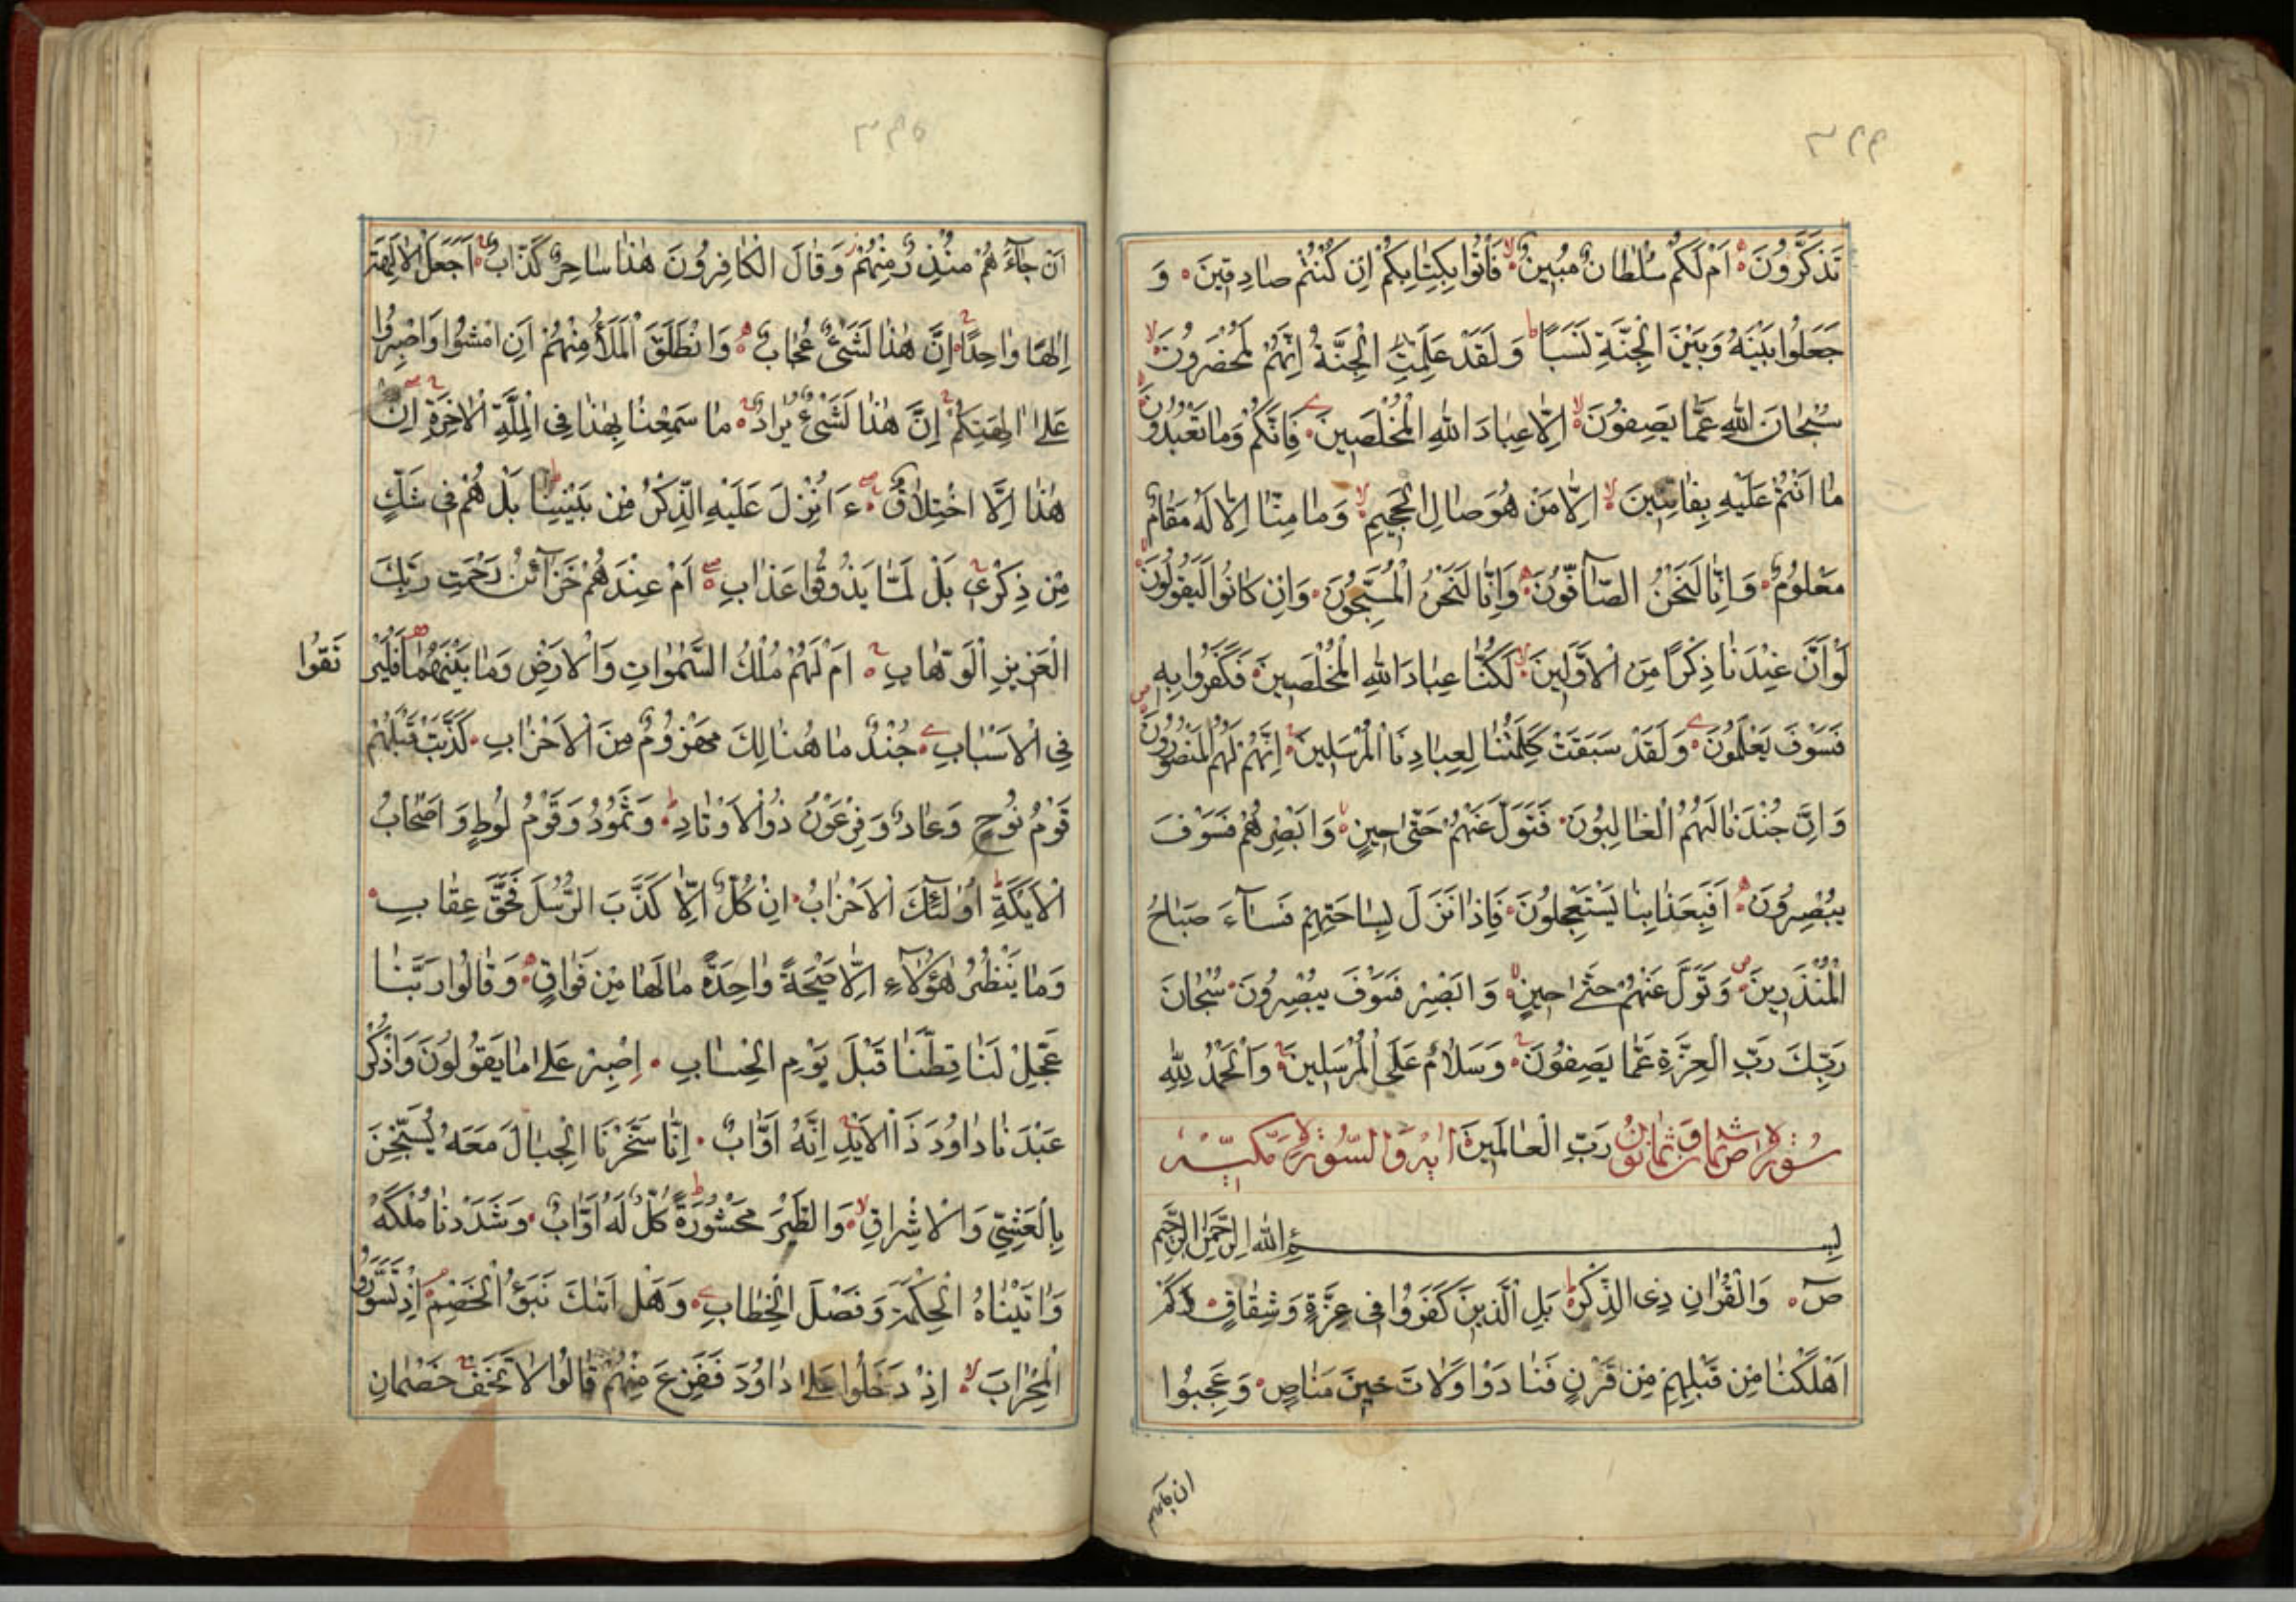 ٣٤٤
تَذَكَّرُونَ اَمْ لَكُمْ سُلْطَانٌ مُبِينٌ فَأْتُوا بِكِتَابِكُمْ اِنْ كُنْتُمْ صَادِقِينَ وَ
جَعَلُوا بَيْنَهُ وَبَيْنَ الْجِنَّةِ نَسَبًا وَلَقَدْ عَلِمَتِ الْجِنَّةُ اِنَّهُمْ لَمُحْضَرُونَ
سُبْحَانَ اللّٰهِ عَمَّا يَصِفُونَ اِلَّا عِبَادَ اللّٰهِ الْمُخْلَصِينَ فَاِنَّكُمْ وَمَا تَعْبُدُونَ
مَا اَنْتُمْ عَلَيْهِ بِفَاتِنِينَ اِلَّا مَنْ هُوَ صَالِ الْجَحِيمِ وَمَا مِنَّا اِلَّا لَهُ مَقَامٌ
مَعْلُومٌ وَاِنَّا لَنَحْنُ الصَّآفُّونَ وَاِنَّا لَنَحْنُ الْمُسَبِّحُونَ وَاِنْ كَانُوا لَيَقُولُونَ
لَوْ اَنَّ عِنْدَنَا ذِكْرًا مِنَ الْاَوَّلِينَ لَكُنَّا عِبَادَ اللّٰهِ الْمُخْلَصِينَ فَكَفَرُوا بِهِ
فَسَوْفَ يَعْلَمُونَ وَلَقَدْ سَبَقَتْ كَلِمَتُنَا لِعِبَادِنَا الْمُرْسَلِينَ اِنَّهُمْ لَهُمُ الْمَنْصُورُونَ
وَاِنَّ جُنْدَنَا لَهُمُ الْغَالِبُونَ فَتَوَلَّ عَنْهُمْ حَتّٰى حِينٍ وَاَبْصِرْهُمْ فَسَوْفَ
يُبْصِرُونَ اَفَبِعَذَابِنَا يَسْتَعْجِلُونَ فَاِذَا نَزَلَ بِسَاحَتِهِمْ فَسَآءَ صَبَاحُ
الْمُنْذَرِينَ وَتَوَلَّ عَنْهُمْ حَتّٰى حِينٍ وَاَبْصِرْ فَسَوْفَ يُبْصِرُونَ سُبْحَانَ
رَبِّكَ رَبِّ الْعِزَّةِ عَمَّا يَصِفُونَ وَسَلَامٌ عَلَى الْمُرْسَلِينَ وَالْحَمْدُ لِلّٰهِ
سُورَة صٓ ثمان وثمانون رَبِّ الْعَالَمِينَ اٰية والسُّورة مكيّة
بِسْمِ اللّٰهِ الرَّحْمٰنِ الرَّحِيمِ
صٓ وَالْقُرْاٰنِ ذِى الذِّكْرِ بَلِ الَّذِينَ كَفَرُوا فِى عِزَّةٍ وَشِقَاقٍ كَمْ
اَهْلَكْنَا مِنْ قَبْلِهِمْ مِنْ قَرْنٍ فَنَادَوْا وَلَاتَ حِينَ مَنَاصٍ وَعَجِبُوا
ان جاءهم
٣٤٥
اَنْ جَآءَهُمْ مُنْذِرٌ مِنْهُمْ وَقَالَ الْكَافِرُونَ هٰذَا سَاحِرٌ كَذَّابٌ اَجَعَلَ الْاٰلِهَةَ
اِلٰهًا وَاحِدًا اِنَّ هٰذَا لَشَىْءٌ عُجَابٌ وَانْطَلَقَ الْمَلَأُ مِنْهُمْ اَنِ امْشُوا وَاصْبِرُوا
عَلٰى اٰلِهَتِكُمْ اِنَّ هٰذَا لَشَىْءٌ يُرَادُ مَا سَمِعْنَا بِهٰذَا فِى الْمِلَّةِ الْاٰخِرَةِ اِنْ
هٰذَا اِلَّا اخْتِلَاقٌ ءَاُنْزِلَ عَلَيْهِ الذِّكْرُ مِنْ بَيْنِنَا بَلْ هُمْ فِى شَكٍّ
مِنْ ذِكْرِى بَلْ لَمَّا يَذُوقُوا عَذَابِ اَمْ عِنْدَهُمْ خَزَآئِنُ رَحْمَتِ رَبِّكَ
الْعَزِيزِ الْوَهَّابِ اَمْ لَهُمْ مُلْكُ السَّمٰوَاتِ وَالْاَرْضِ وَمَا بَيْنَهُمَا فَلْيَرْ تَقُوا
فِى الْاَسْبَابِ جُنْدٌ مَا هُنَالِكَ مَهْزُومٌ مِنَ الْاَحْزَابِ كَذَّبَتْ قَبْلَهُمْ
قَوْمُ نُوحٍ وَعَادٌ وَفِرْعَوْنُ ذُو الْاَوْتَادِ وَثَمُودُ وَقَوْمُ لُوطٍ وَاَصْحَابُ
الْاَيْكَةِ اُولٰئِكَ الْاَحْزَابُ اِنْ كُلٌّ اِلَّا كَذَّبَ الرُّسُلَ فَحَقَّ عِقَابِ
وَمَا يَنْظُرُ هٰؤُلَآءِ اِلَّا صَيْحَةً وَاحِدَةً مَا لَهَا مِنْ فَوَاقٍ وَقَالُوا رَبَّنَا
عَجِّلْ لَنَا قِطَّنَا قَبْلَ يَوْمِ الْحِسَابِ اِصْبِرْ عَلٰى مَا يَقُولُونَ وَاذْكُرْ
عَبْدَنَا دَاوُدَ ذَا الْاَيْدِ اِنَّهُ اَوَّابٌ اِنَّا سَخَّرْنَا الْجِبَالَ مَعَهُ يُسَبِّحْنَ
بِالْعَشِىِّ وَالْاِشْرَاقِ وَالطَّيْرَ مَحْشُورَةً كُلٌّ لَهُ اَوَّابٌ وَشَدَدْنَا مُلْكَهُ
وَاٰتَيْنَاهُ الْحِكْمَةَ وَفَصْلَ الْخِطَابِ وَهَلْ اَتٰىكَ نَبَؤُ الْخَصْمِ اِذْ تَسَوَّرُوا
الْمِحْرَابَ اِذْ دَخَلُوا عَلٰى دَاوُدَ فَفَزِعَ مِنْهُمْ قَالُوا لَا تَخَفْ خَصْمَانِ